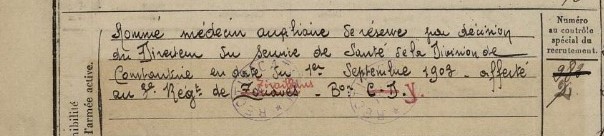 Nommé médecin auxiliaire de réserve par décision
du Directeur du Service de Santé de la Division de
Constantine en date du 1er Septembre 1903 - affecté
au 3e Régt de Zouaves - Bon C. D.
Tirailleurs
Numéro
au contrôle
spécial du
recrutement.
ibilité
l'armée active.